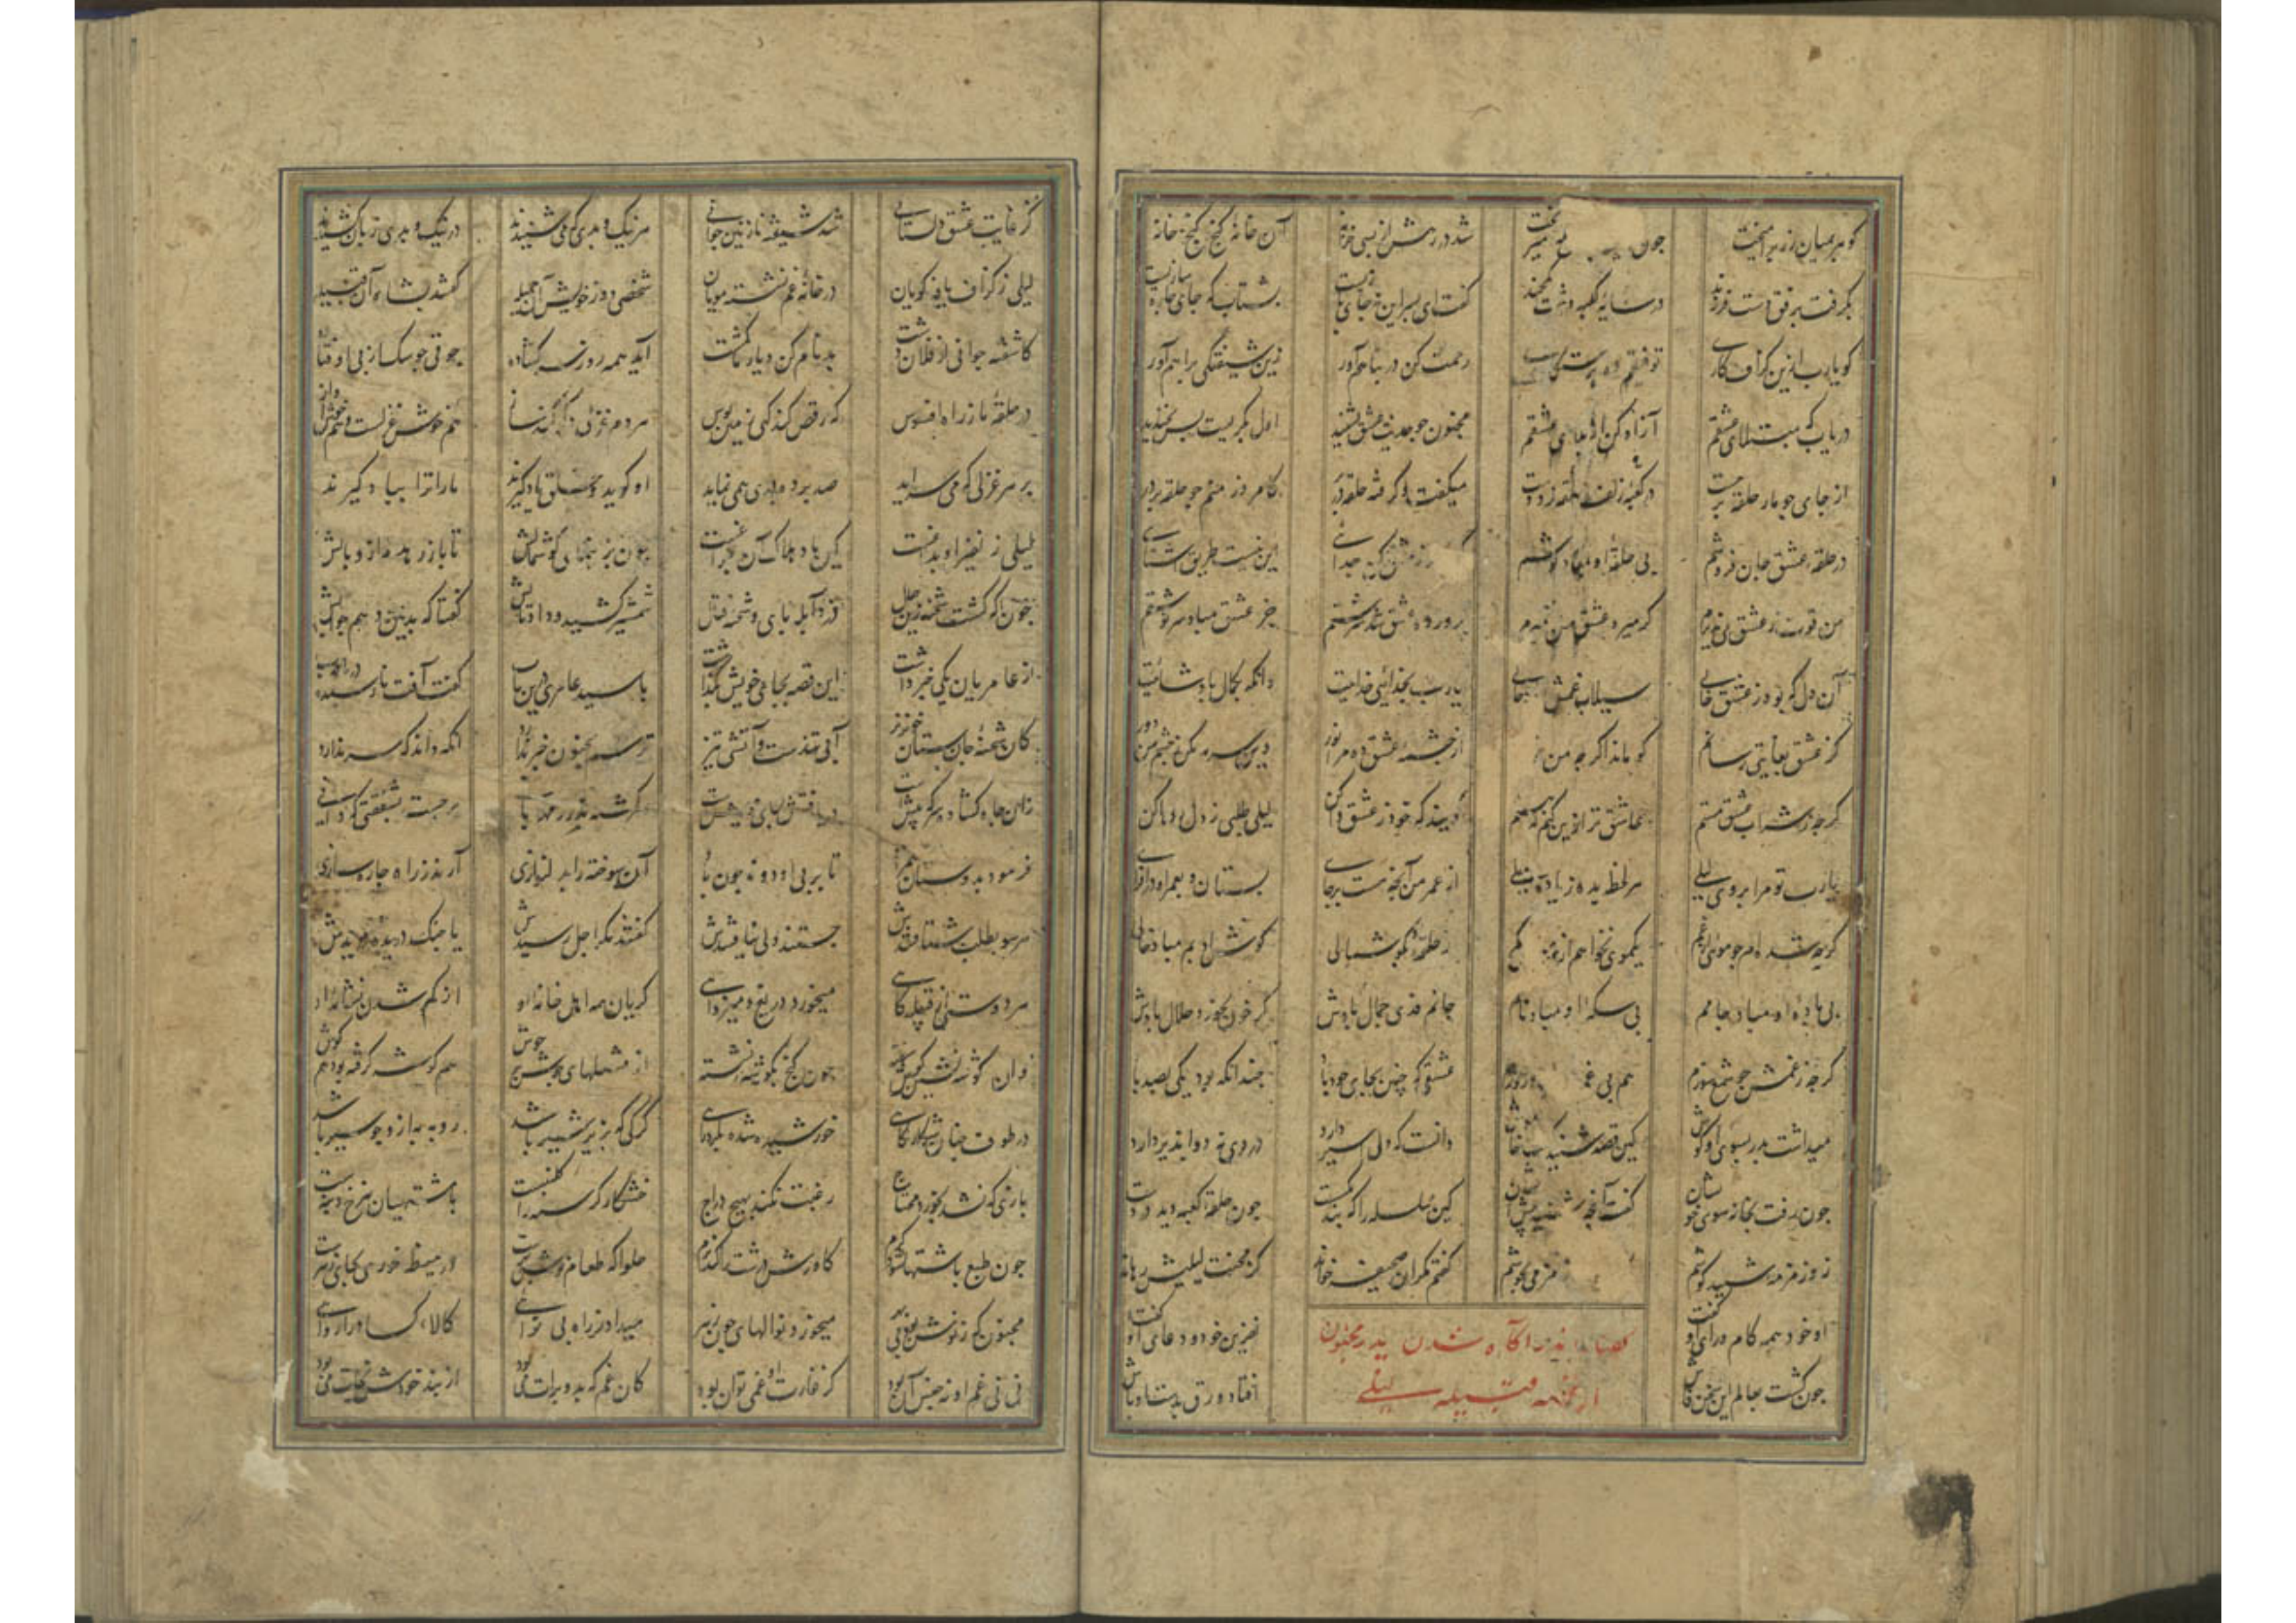 گوهر بمیان زر برآمیخت چون شد در رهش از بسی خزانه آن خانهٔ گنج گنج خانه
بگرفت برفق دست فرزند در سایهٔ کعبه داشت یکچند گفت ای پسر این نه جای بازیست بشتاب که جای چاره سازیست
گو یارب ازین گزاف کاری توفیق دهم برستکاری رحمت کن و در پناهم آور زین شیفتگی براهم آور
دریاب که مبتلای عشقم آزاد کن از بلای عشقم مجنون چو حدیث عشق بشنید اول بگریست پس بخندید
از جای چو مار حلقه برجست در کعبه زلف حلقه زد دست میگفت و گرفته حلقه در بر کامروز منم چو حلقه بر در
در حلقهٔ عشق جان فروشم بی حلقهٔ او مباد گوشم ز عشق کن جدایی این نیست طریق آشنایی
من قوت ز عشق می پذیرم گر میرد عشق من بمیرم پرورده عشق شد سرشتم جز عشق مباد سرنوشتم
آن دل که بود ز عشق خالی سیلاب غمش یارب بخدائی خداییت وانگه بکمال پادشائیت
کز عشق بغایتی رسانم کو ماند اگرچه من از چشمهٔ عشق ده مرا نور وین سرمه مکن ز چشم من دور
گرچه ز شراب عشق مستم عاشق تر ازین کنم که هستم گویند که خو ز عشق واکن لیلی طلبی ز دل رها کن
یارب تو مرا بروی لیلی هر لحظه بده زیاده میلی از عمر من آنچه هست برجای بستان و بعمر او درافزای
گرچه شده ام چو مویش از غم یکموی نخواهم از سرش کم از حلقهٔ او بگوشمالی گوش ادبم مباد خالی
بی بادهٔ او مباد جامم بی سکهٔ او مباد نامم جانم فدی جمال بادش گر خون بخورد حلال بادش
گرچه ز غمش چو شمع سوزم هم بی غم روزم عشقی که چنین بجای خود باد چندانکه بود یکی بصد باد
میداشت پدر بسوی او گوش کین قصه شنید گشت خاموش دانست که دل اسیر دارد دردی نه دواپذیر دارد
چون رفت بخانه سوی خویشان گفت آنچه شنید پیش ایشان کین سلسله را که بند بشکست چون حلقهٔ کعبه دید در دست
زو زمزمه شنید گوشم زمزمی بجوشم گفتم مگر آن صحیفه خواند کز محنت لیلیش رهاند
او خود همه کام و رای او گفت نفرین خود و دعای او گفت
آگاه شدن پدر مجنون
از قبیله لیلی
چون گشت بعالم این سخن فاش افتاد ورق بدست اوباش
کز غایت عشق دلستانی شد شیفته نازنین جوانی هر نیک و بدی که می شنیدند در نیک و بدی زبان کشیدند
لیلی ز گزاف یافه گویان در خانهٔ غم نشسته مویان شخصی دو ز خویش آن جمیله گفتند بشاه آن قبیله
کاشفته جوانی از فلان دشت بدنام کن دیار ما گشت آید همه روز سر گشاده جوقی چو سگ از پی اوفتاده
در حلقهٔ ما ز راه افسوس گه رقص کند گهی زمین بوس هر دم غزلی دگر کند ساز هم خوش غزلست و هم خوش آواز
هر هر غزلی که می سراید صد پرده دری همی نماید او گوید و خلق یاد گیرند ما را و ترا بباد گیرند
لیلی ز نفیر او بداغست کین باد هلاک آن چراغست چون بز بنمای گوشمالش تا باز رهد مه از وبالش
چون که گشت شحنه زین حال دزد آبله پای و شحنه قتال شمشیر کشید و داد تابش گفتا که بدین دهم جوابش
از عامریان یکی خبر داشت این قصه بجای خویش بگذاشت با سید عامری درین باب گفت آفت نارسیده دریاب
کان شحنهٔ جان ستان خونریز آبی تندست و آتشی تیز ترسم مجنون خبر ندارد آنگه داند که سر ندارد
زان چاه گشاده سر که پیش است دریافتنش بجای خویش است سرگشته پدر ز مهربانی برجست بشفقتی که دانی
فرمود بدوستان همزاد تا بر پی او دوند چون باد آن سوخته را بدلنوازی آرند ز راه چاره سازی
هر سو بطلب شتافتندش جستند ولی نیافتندش گفتند مگر اجل رسیدش یا چنگ درنده دریدش
هر دوستی از قبیله گاهی میخورد دریغ و میزد آهی گریان همه اهل خانه او از گم شدن نشانه او
وان گوشه نشین گوش سفته چون گنج بگوشهٔ نشسته از مشغلهای جوش بر جوش هم گوشه گرفته بود و هم گوش
در طوف چنان شکارگاهی خورشید شده بگرد ماهی گرگی که بزور شیر باشد روبه به ازو چو سیر باشد
بازی که نشد بخورد محتاج رغبت نکند بهیچ دراج خشکار گرسنه را کلیچست با سیر نان میده هیچست
چون طبع باشتها شود گرم گاورس درشت را کند نرم حلوا که طعام نوش بهرست در هیضه خوری بجای زهرست
مجنون که ز نوش بود بی بهر میخورد نوالهای چون زهر میداد ز راه بی نوائی کالای کساد را روائی
نی نی غم او نه جنس آن بود کز غارت او غمی توان بود کان غم که بدو برات می بود از بند خودش نجات می بود